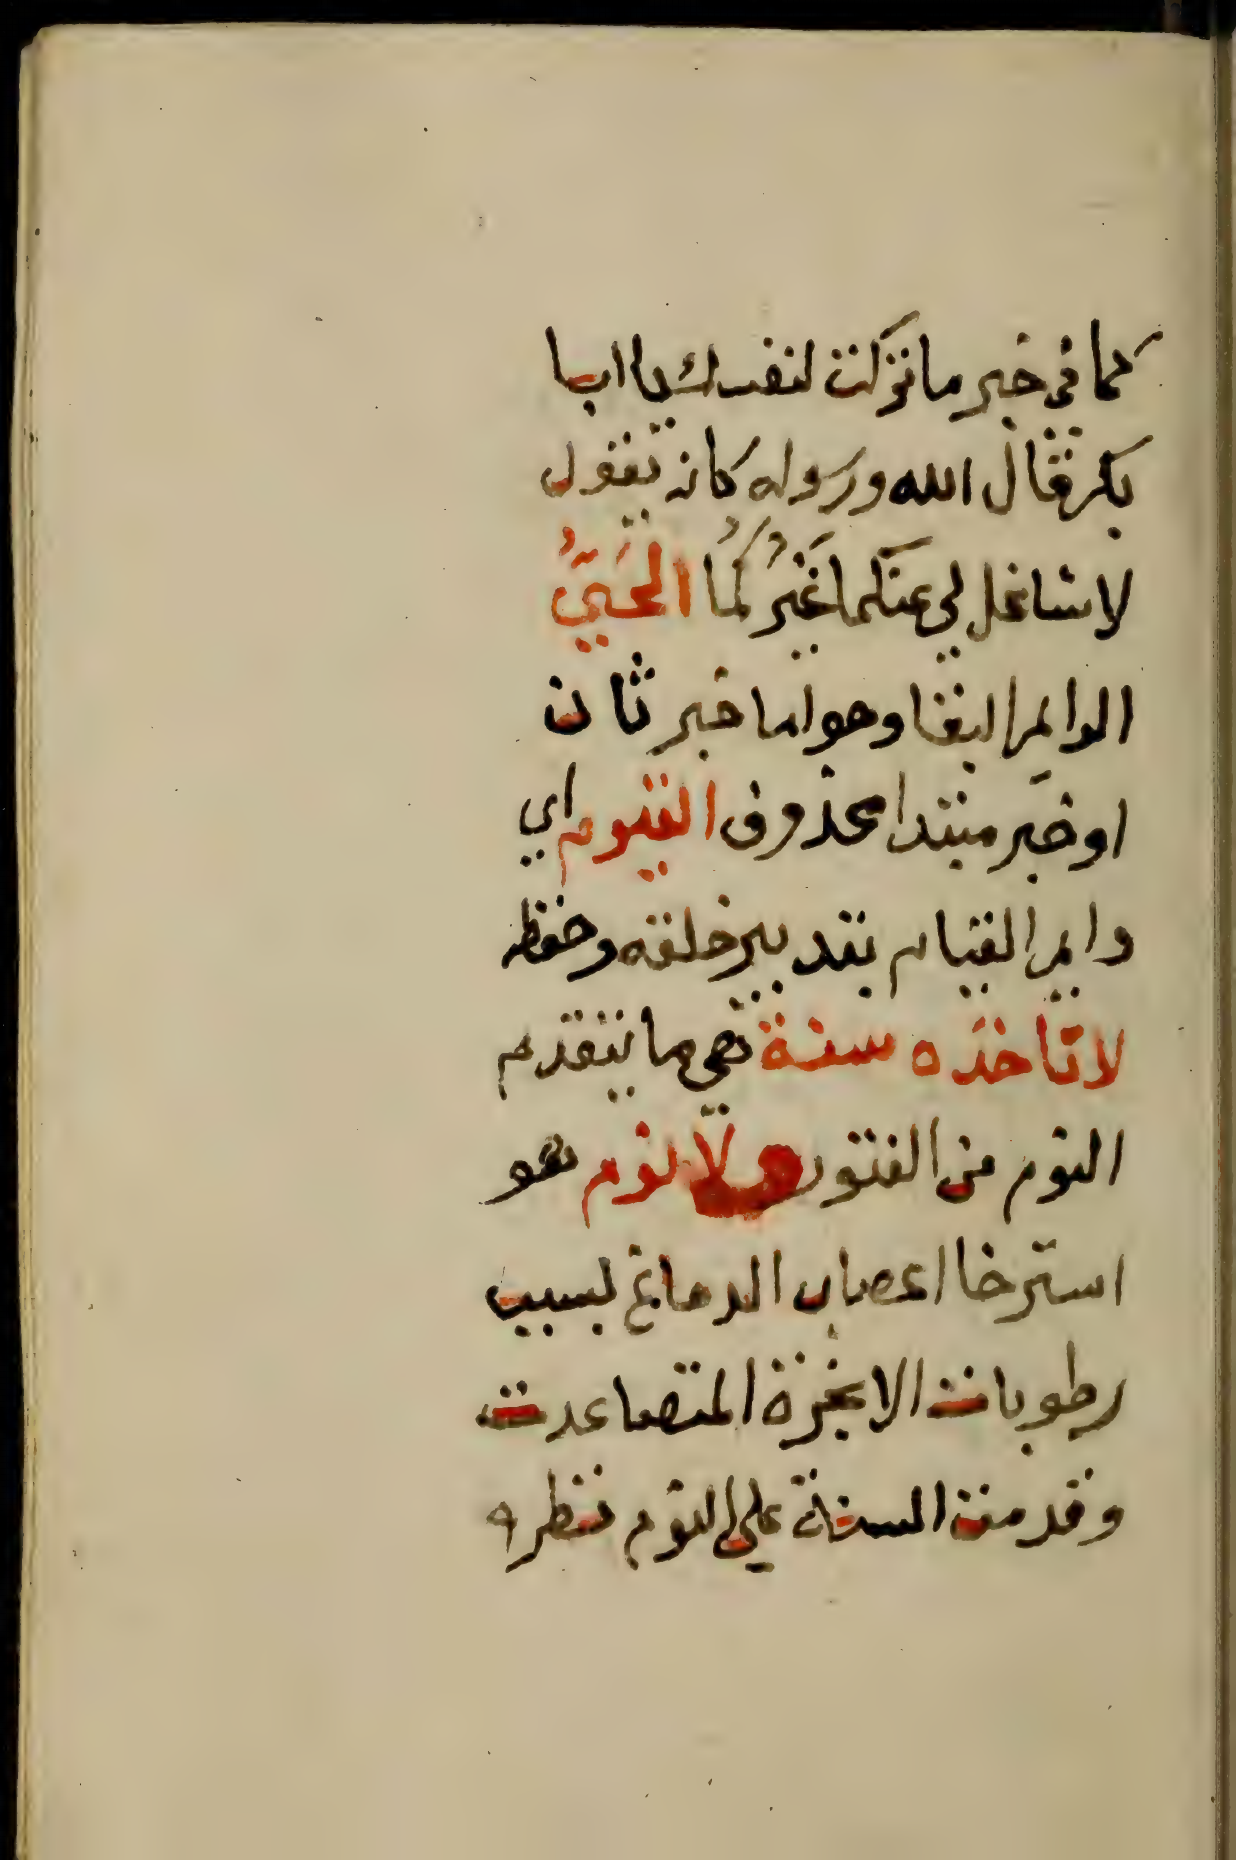 كما في خبر ما تركت لنفسك يا ابا
بكر فقال الله ورسوله كانه يقول
لا شاغل لي عنكما غَيْرُكُمَا الحَيُّ
الدايم البقا وهو اما خبر ثان
او خبر مبتدا محذوف القيوم اي
دايم القيام بتدبير خلقه وحفظه
لا تاخذه سنة هي ما يتقدم
النوم من الفتور ولا نوم هو
استرخا اعصاب الدماغ بسبب
رطوبات الابخرة المتصاعدت
وقدمت السنة على النوم نظرا